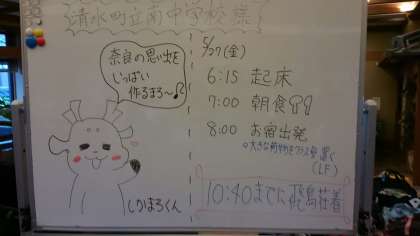 清水町立南中学校 様
奈良の思い出を
いっぱい
作るまろ〜♪
しかまろくん
5/27(金)
6:15 起床
7:00 朝食
8:00 お宿出発
(LF)
10:40までに飛鳥荘着